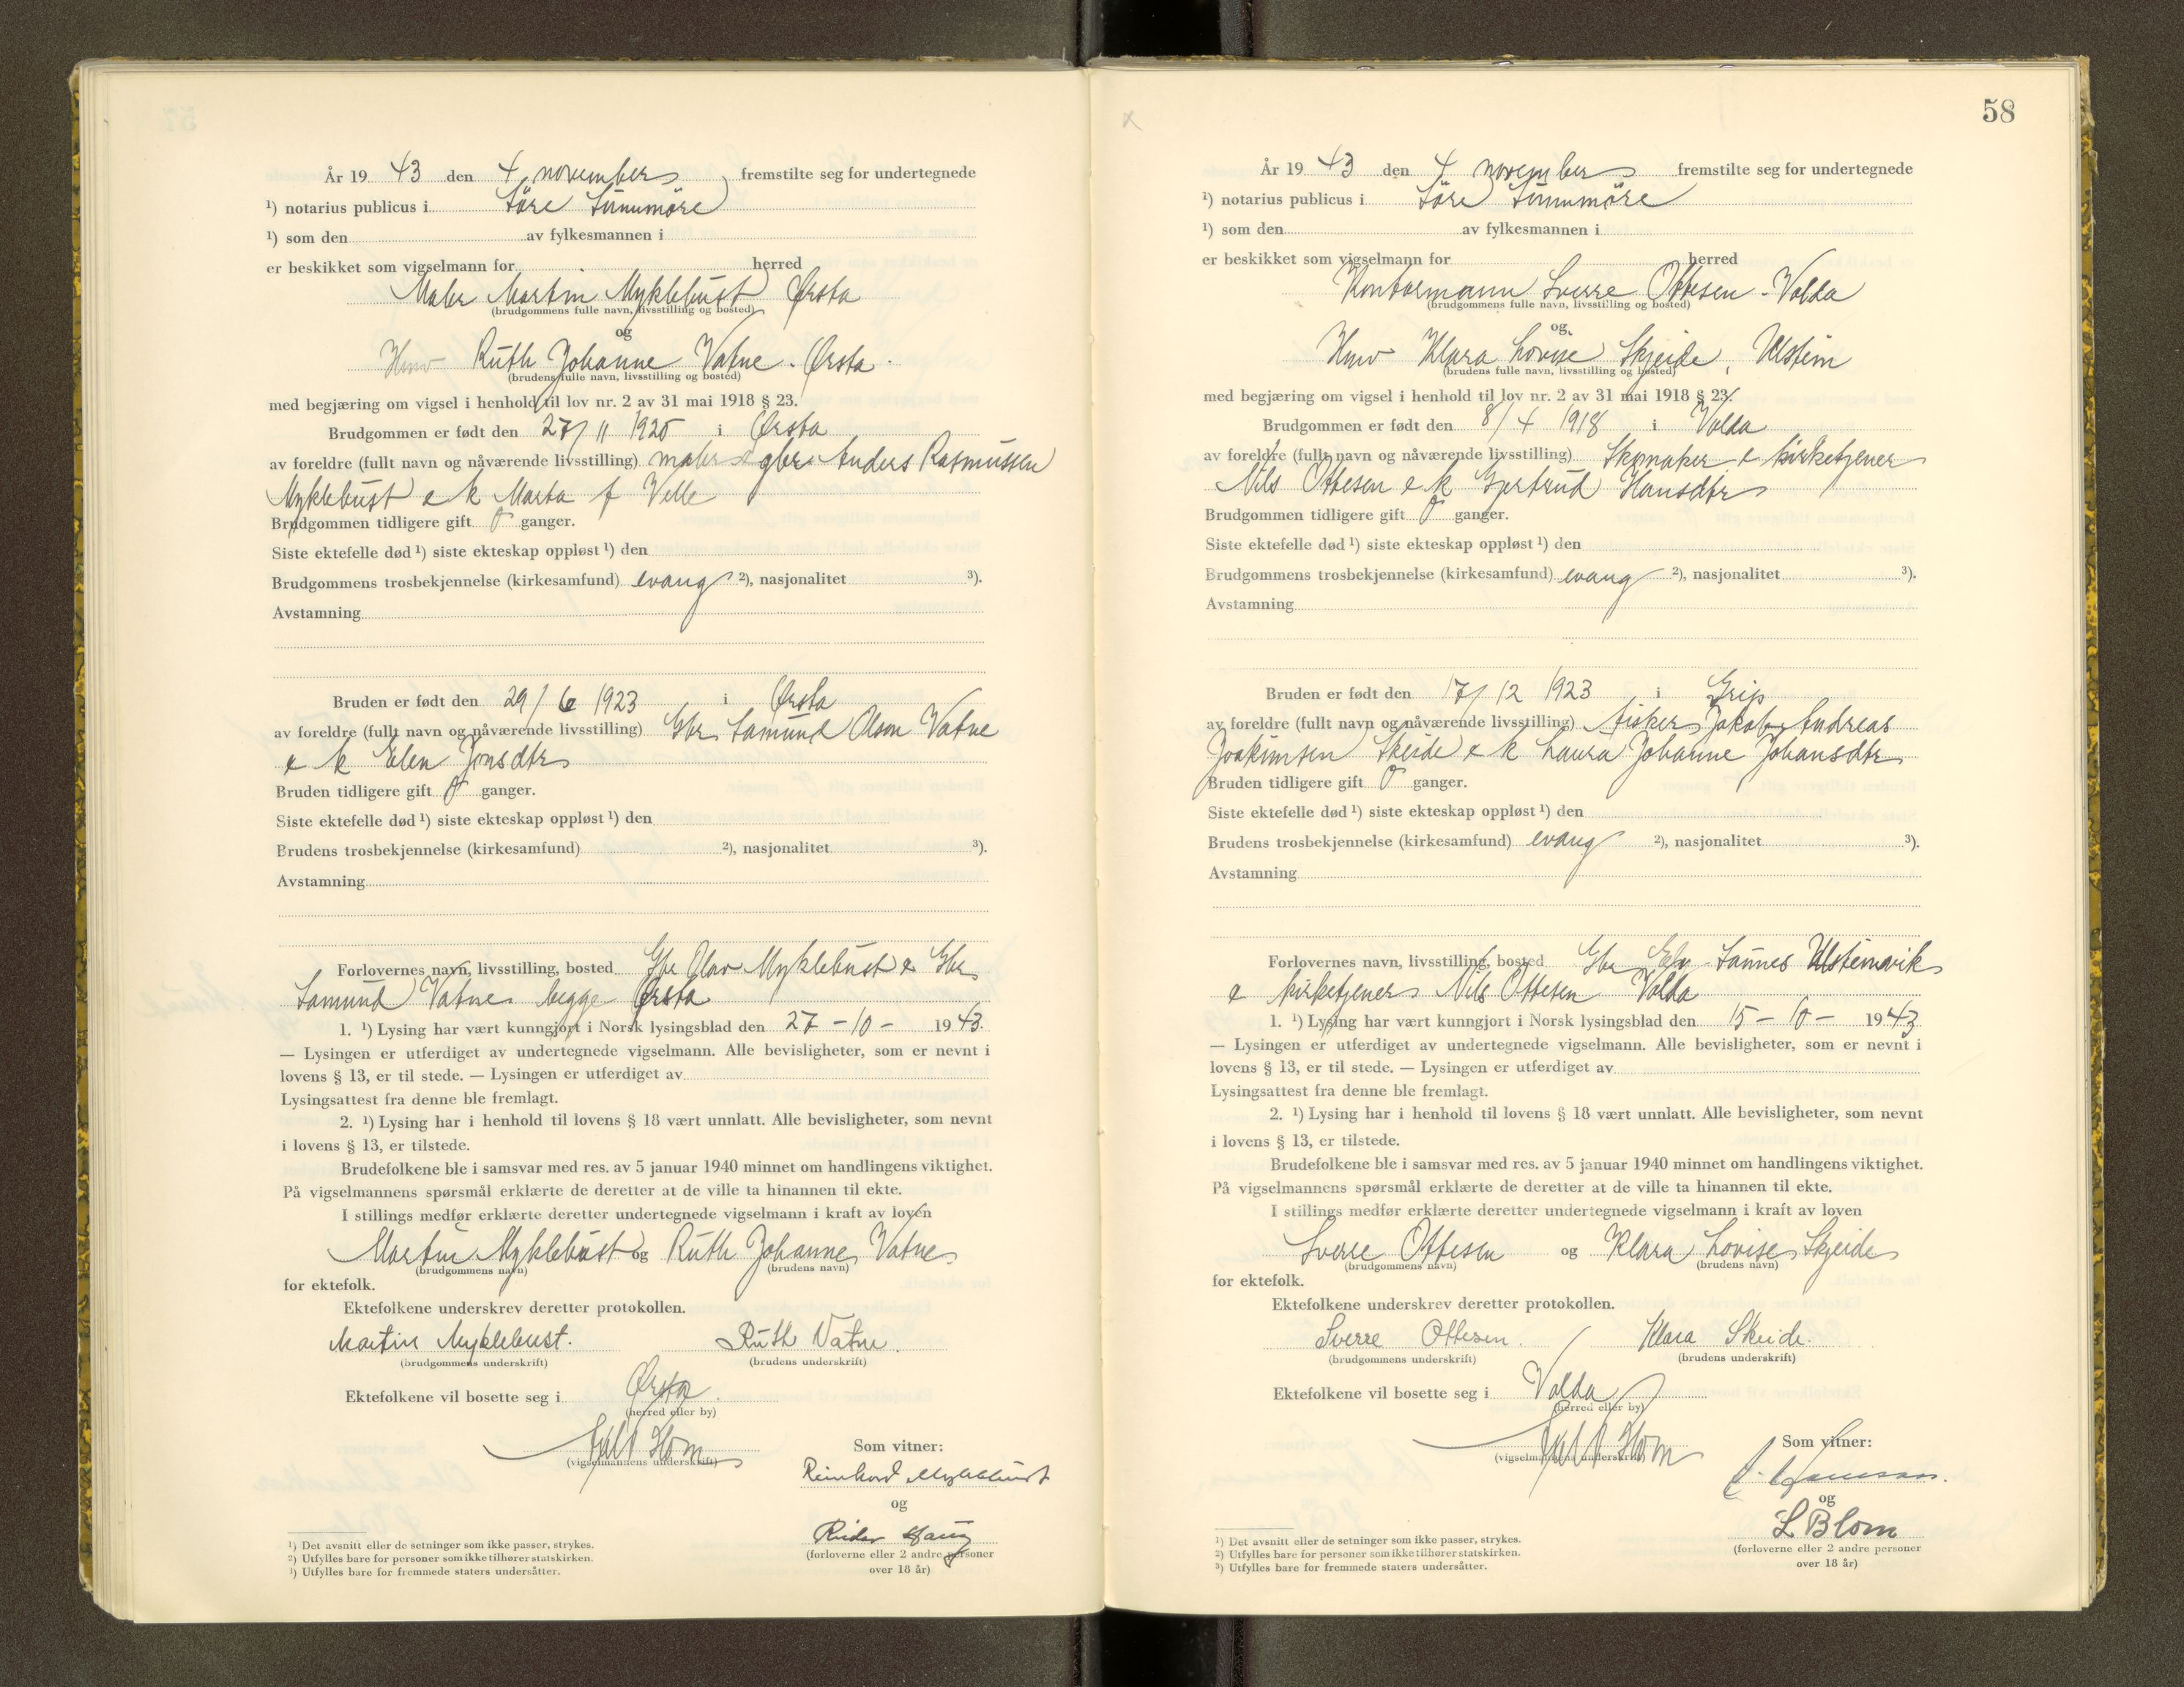 År 19 43 den 4 november fremstilte seg for undertegnede
¹) notarius publicus i Søre Sunnmøre
¹) som den av fylkesmannen i
er beskikket som vigselmann for herred
Maler Martin Myklebust Ørsta
(brudgommens fulle navn, livsstilling og bosted)
og
Hmv Ruth Johanne Vatne - Ørsta
(brudens fulle navn, livsstilling og bosted)
med begjæring om vigsel i henhold til lov nr. 2 av 31 mai 1918 § 23.
Brudgommen er født den 27/11 1920 i Ørsta
av foreldre (fullt navn og nåværende livsstilling) maler gbr Anders Rasmussen
Myklebust e k Marta f Velle
Brudgommen tidligere gift 0 ganger.
Siste ektefelle død ¹) siste ekteskap oppløst ¹) den
Brudgommens trosbekjennelse (kirkesamfund) evang ²), nasjonalitet ³).
Avstamning
Bruden er født den 29/6 1923 i Ørsta
av foreldre (fullt navn og nåværende livsstilling) Gbr Samund Olson Vatne
e k Elen Jonsdtr
Bruden tidligere gift 0 ganger.
Siste ektefelle død ¹) siste ekteskap oppløst ¹) den
Brudens trosbekjennelse (kirkesamfund) ²), nasjonalitet ³).
Avstamning
Forlovernes navn, livsstilling, bosted Gbr Olav Myklebust e Gbr
Samund Vatne begge Ørsta
1. ¹) Lysing har vært kunngjort i Norsk lysingsblad den 27 - 10 - 1943.
— Lysingen er utferdiget av undertegnede vigselmann. Alle bevisligheter, som er nevnt i
lovens § 13, er til stede. — Lysingen er utferdiget av
Lysingsattest fra denne ble fremlagt.
2. ¹) Lysing har i henhold til lovens § 18 vært unnlatt. Alle bevisligheter, som nevnt
i lovens § 13, er tilstede.
Brudefolkene ble i samsvar med res. av 5 januar 1940 minnet om handlingens viktighet.
På vigselmannens spørsmål erklærte de deretter at de ville ta hinannen til ekte.
I stillings medfør erklærte deretter undertegnede vigselmann i kraft av loven
Martin Myklebust og Ruth Johanne Vatne
(brudgommens navn) (brudens navn)
for ektefolk.
Ektefolkene underskrev deretter protokollen.
Martin Myklebust. Ruth Vatne.
(brudgommens underskrift) (brudens underskrift)
Ektefolkene vil bosette seg i Ørsta
(herred eller by)
(vigselmannens underskrift)
Som vitner:
Reinhard Myklebust
og
Reidar Haug
(forloverne eller 2 andre personer
over 18 år)
¹) Det avsnitt eller de setninger som ikke passer, strykes.
²) Utfylles bare for personer som ikke tilhører statskirken.
³) Utfylles bare for fremmede staters undersåtter.
58
År 19 43 den 4 november fremstilte seg for undertegnede
¹) notarius publicus i Søre Sunnmøre
¹) som den av fylkesmannen i
er beskikket som vigselmann for herred
Kontormann Sverre Ottesen - Volda
(brudgommens fulle navn, livsstilling og bosted)
og
Hmv Klara Lovise Skjeide, Ulstein
(brudens fulle navn, livsstilling og bosted)
med begjæring om vigsel i henhold til lov nr. 2 av 31 mai 1918 § 23.
Brudgommen er født den 8/4 1918 i Volda
av foreldre (fullt navn og nåværende livsstilling) Skomaker e kirketjener
Nils Ottesen e k Gjertrud Hansdtr
Brudgommen tidligere gift 0 ganger.
Siste ektefelle død ¹) siste ekteskap oppløst ¹) den
Brudgommens trosbekjennelse (kirkesamfund) evang ²), nasjonalitet ³).
Avstamning
Bruden er født den 17/12 1923 i Grip
av foreldre (fullt navn og nåværende livsstilling) fisker Jakob Andreas
Joakimsen Skeide e k Laura Johanne Johansdtr
Bruden tidligere gift 0 ganger.
Siste ektefelle død ¹) siste ekteskap oppløst ¹) den
Brudens trosbekjennelse (kirkesamfund) evang ²), nasjonalitet ³).
Avstamning
Forlovernes navn, livsstilling, bosted Gbr Saunes Ulsteinvik
e kirketjener Nils Ottesen Volda
1. ¹) Lysing har vært kunngjort i Norsk lysingsblad den 15 - 10 - 1943
— Lysingen er utferdiget av undertegnede vigselmann. Alle bevisligheter, som er nevnt i
lovens § 13, er til stede. — Lysingen er utferdiget av
Lysingsattest fra denne ble fremlagt.
2. ¹) Lysing har i henhold til lovens § 18 vært unnlatt. Alle bevisligheter, som nevnt
i lovens § 13, er tilstede.
Brudefolkene ble i samsvar med res. av 5 januar 1940 minnet om handlingens viktighet.
På vigselmannens spørsmål erklærte de deretter at de ville ta hinannen til ekte.
I stillings medfør erklærte deretter undertegnede vigselmann i kraft av loven
Sverre Ottesen og Klara Lovise Skjeide
(brudgommens navn) (brudens navn)
for ektefolk.
Ektefolkene underskrev deretter protokollen.
Sverre Ottesen. Klara Skeide.
(brudgommens underskrift) (brudens underskrift)
Ektefolkene vil bosette seg i Volda
(herred eller by)
(vigselmannens underskrift)
Som vitner:
og
L Blom
(forloverne eller 2 andre personer
over 18 år)
¹) Det avsnitt eller de setninger som ikke passer, strykes.
²) Utfylles bare for personer som ikke tilhører statskirken.
³) Utfylles bare for fremmede staters undersåtter.